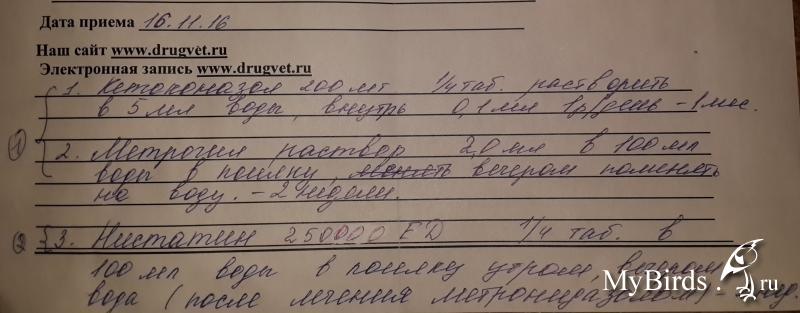 Дата приема 16.11.16
Наш сайт www.drugvet.ru
Электронная запись www.drugvet.ru
1. Кетоконазол 200 мг 1/4 таб. растворить
в 5 мл воды, внутрь 0,1 мл 1р/день - 1 мес.
① 2. Метрогил раствор 2,0 мл в 100 мл
воды в поилку, вечером поменять
на воду. - 2 недели.
② 3. Нистатин 250000 ED 1/4 таб. в
100 мл воды в поилку утром, вечером
вода (после лечения метронидазолом) -
MyBirds.ru